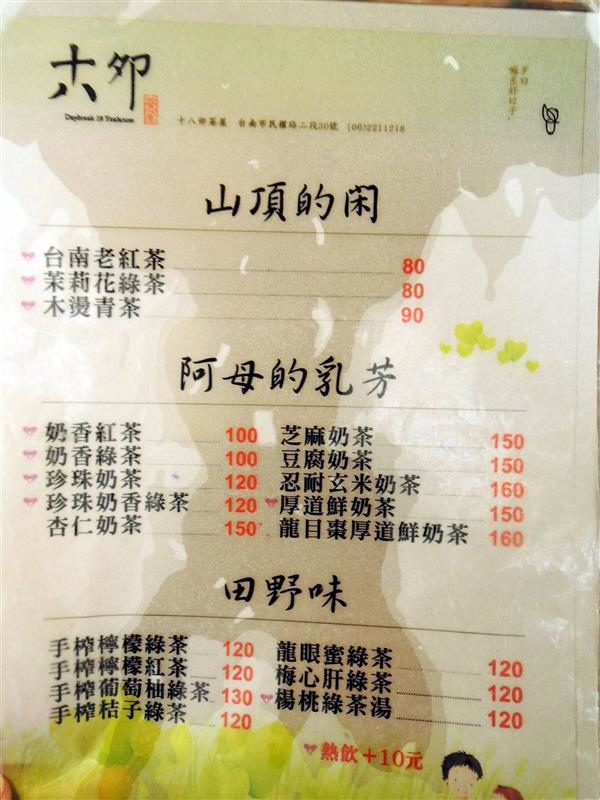 十八卯
茶屋
Daybreak 18 Teahouse
十八卯茶屋 台南市民權路二段30號 (06)2211218
山頂的閑
台南老紅茶 80
茉莉花綠茶 80
木燙青茶 90
阿母的乳芳
奶香紅茶 100
奶香綠茶 100
珍珠奶茶 120
珍珠奶香綠茶 120
杏仁奶茶 150
芝麻奶茶 150
豆腐奶茶 150
忍耐玄米奶茶 160
厚道鮮奶茶 150
龍目棗厚道鮮奶茶 160
田野味
手榨檸檬綠茶 120
手榨檸檬紅茶 120
手榨葡萄柚綠茶 130
手榨桔子綠茶 120
龍眼蜜綠茶 120
梅心肝綠茶 120
楊桃綠茶湯 120
熱飲+10元